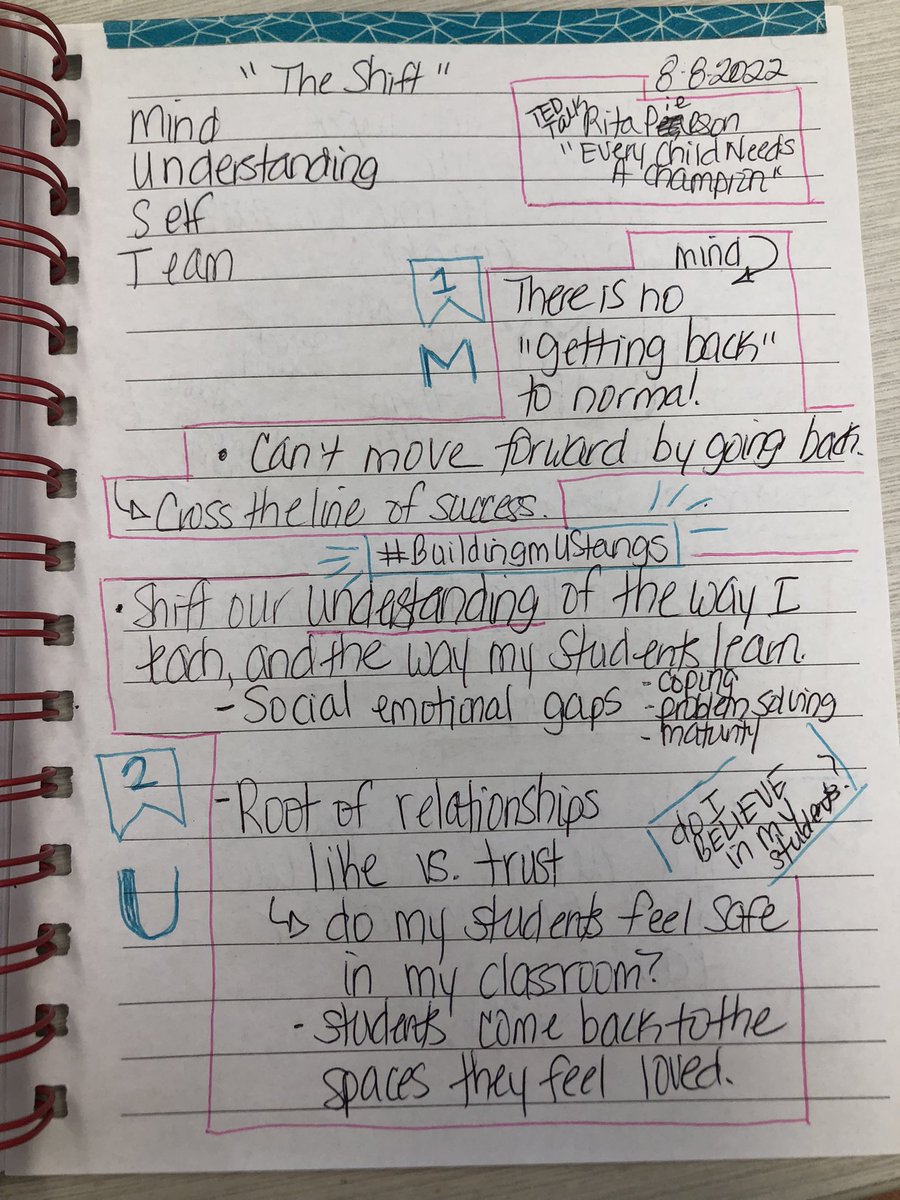 "The Shift"
8-8-2022
Mind
Understanding
Self
Team
TED Talk Rita Pierson
"Every Child Needs
A Champion"
1
M
mind
There is no
"getting back"
to normal.
• Can't move forward by going back.
↳ Cross the line of success.
#BuildingmUStangs
• Shift our undestanding of the way I
teach, and the way my students learn.
- Social emotional gaps
- coping
- problem solving
- maturity
2
U
- Root of relationships
like vs. trust
do I
BELIEVE
in my
students?
↳ do my students feel safe
in my classroom?
- students' come back to the
spaces they feel loved.